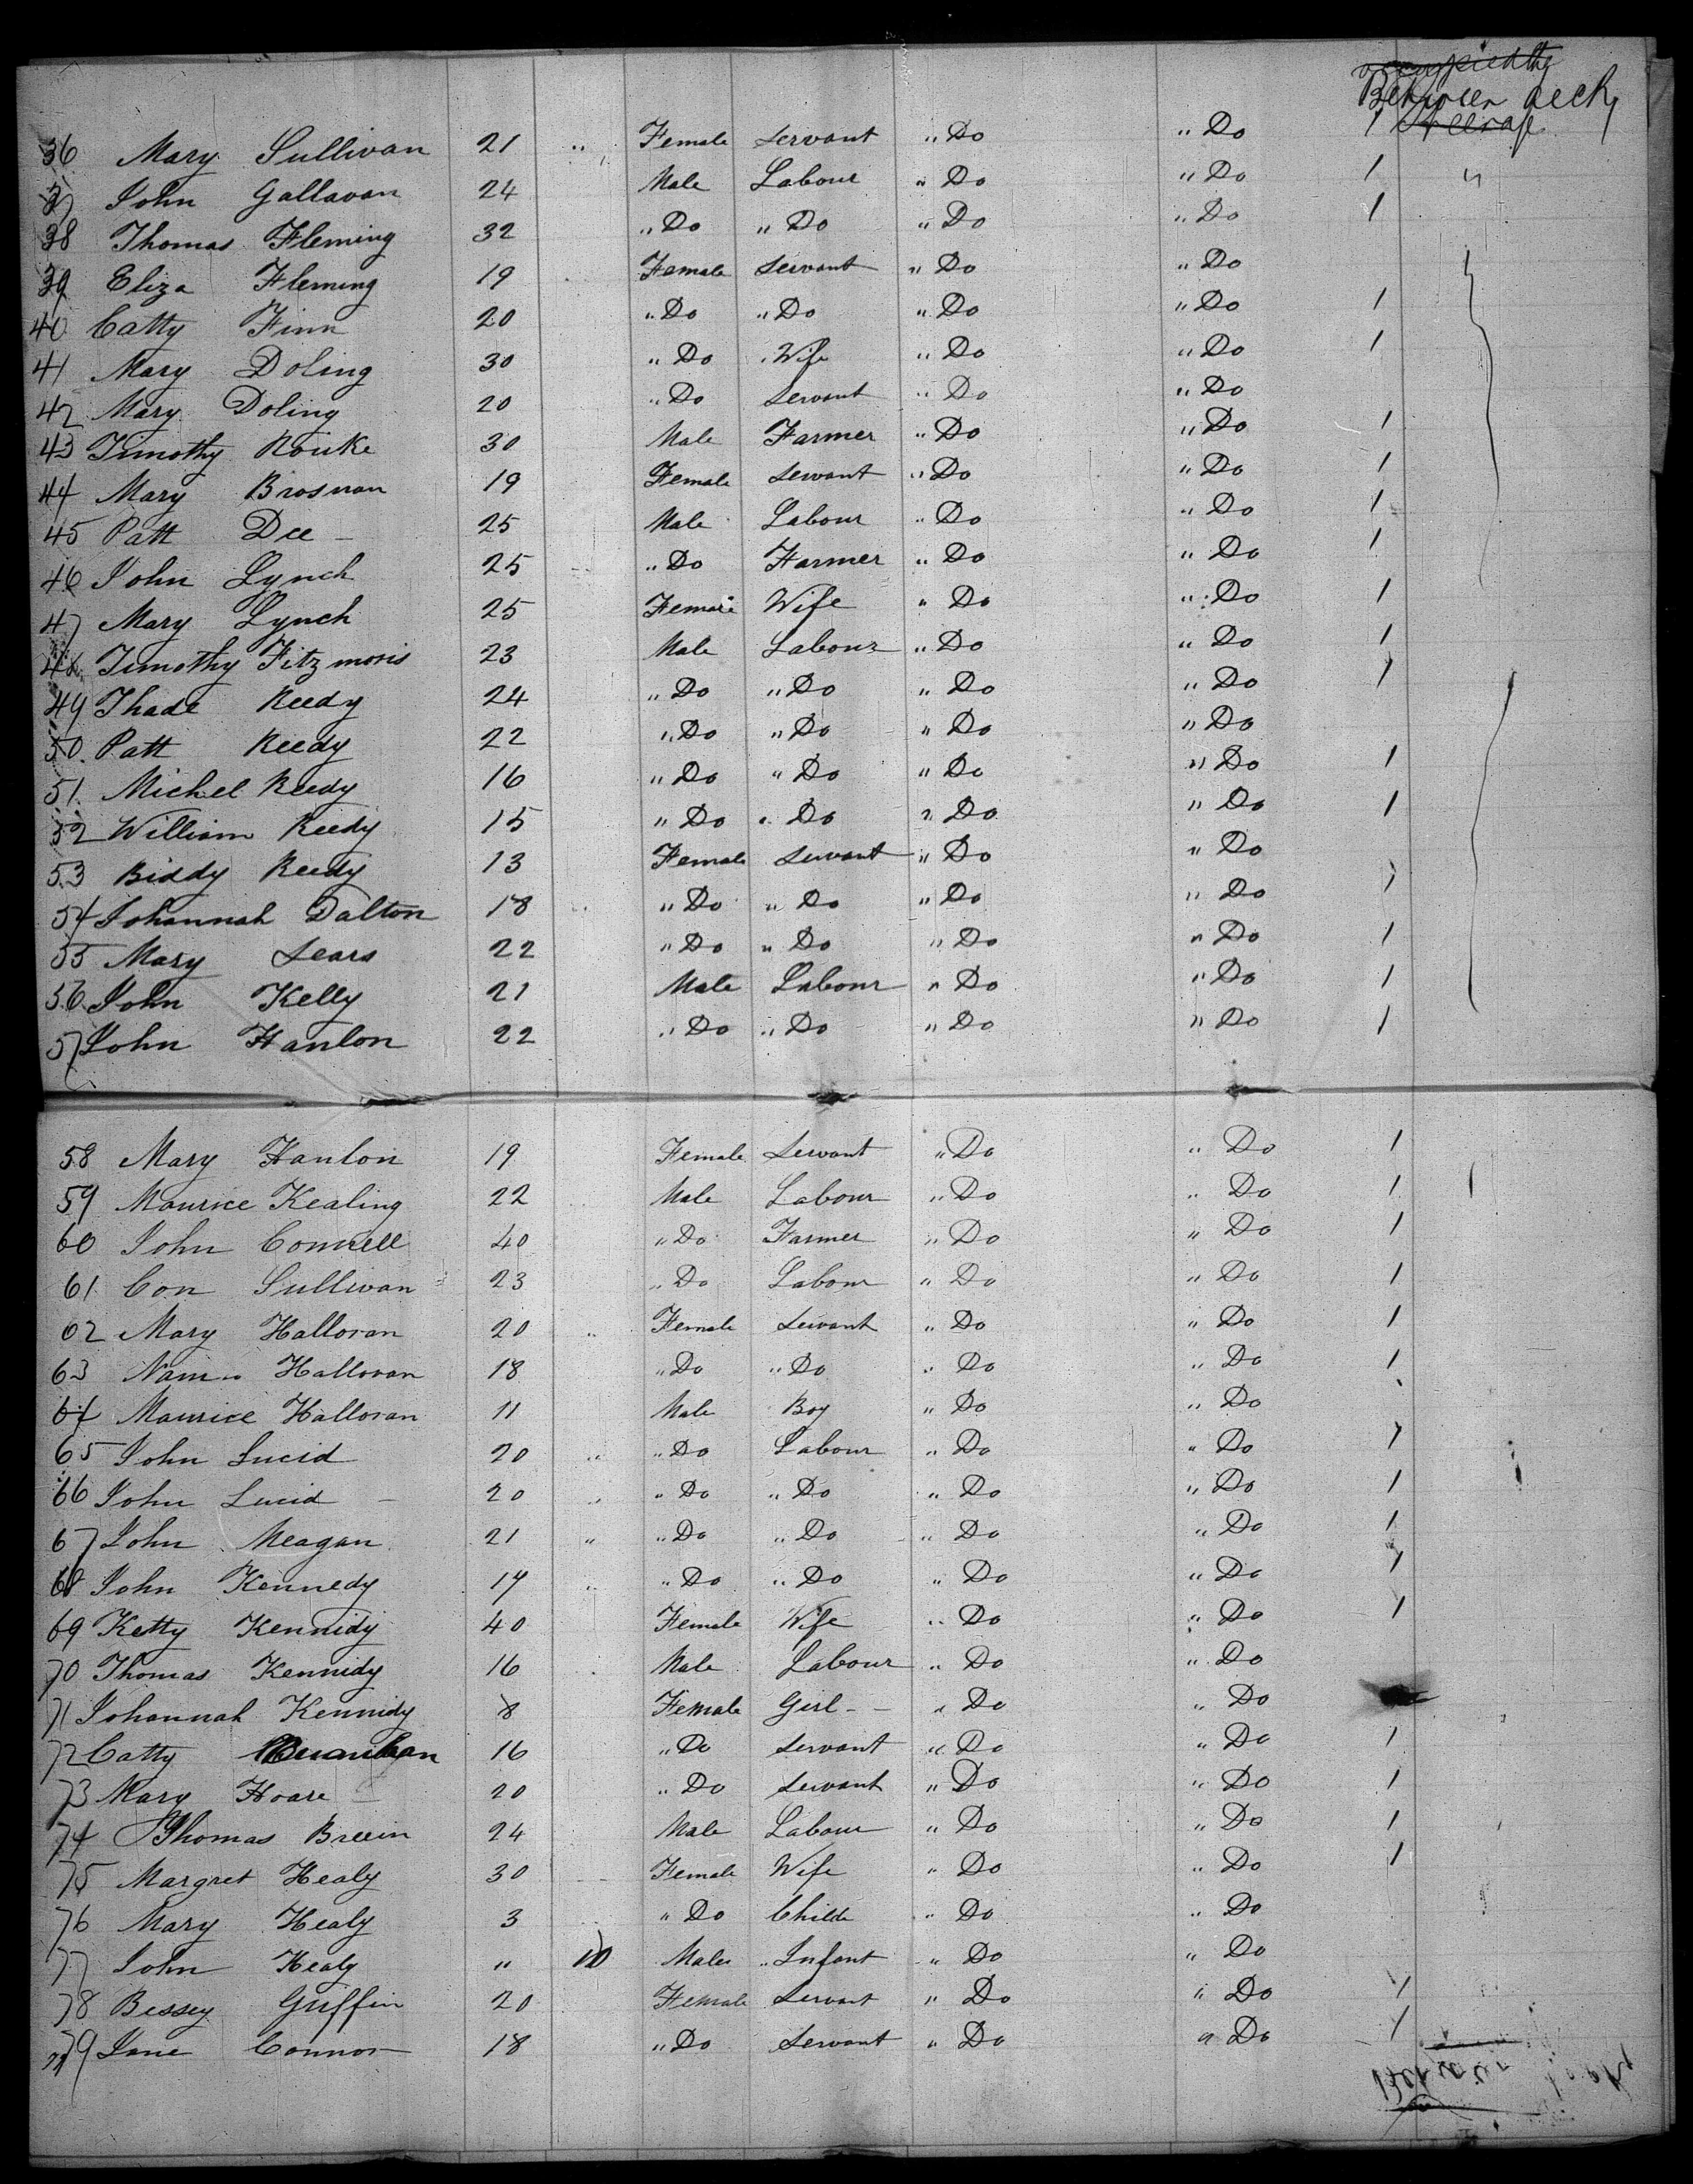 Between deck,
36 Mary Sullivan 21 " Female Servant " Do " Do 1 Steerage
37 John Gallavan 24 Male Labour " Do " Do 1 "
38 Thomas Fleming 32 " Do " Do " Do " Do 1
39 Eliza Fleming 19 Female Servant " Do " Do
40 Catty Finn 20 " Do " Do " Do " Do 1
41 Mary Doling 30 " Do Wife " Do " Do 1
42 Mary Doling 20 " Do Servant " Do " Do
43 Timothy Rouke 30 Male Farmer " Do " Do 1
44 Mary Brosnan 19 Female Servant " Do " Do 1
45 Patt Dee - 25 Male Labour " Do " Do 1
46 John Lynch 25 " Do Farmer " Do " Do 1
47 Mary Lynch 25 Female Wife " Do " Do 1
48 Timothy Fitzmoris 23 Male Labour " Do " Do 1
49 Thade Reedy 24 " Do " Do " Do " Do 1
50. Patt Reedy 22 " Do " Do " Do " Do
51. Michel Reedy 16 " Do " Do " Do " Do 1
52 William Reedy 15 " Do " Do " Do " Do 1
53 Biddy Reedy 13 Female Servant " Do " Do
54 Johannah Dalton 18 " Do " Do " Do " Do 1
55 Mary Sears 22 " Do " Do " Do " Do 1
56 John Kelly 21 Male Labour " Do " Do 1
57 John Hanlon 22 " Do " Do " Do " Do 1
58 Mary Hanlon 19 Female Servant " Do " Do 1
59 Maurice Kealing 22 Male Labour " Do " Do 1 1
60 John Connell 40 " Do Farmer " Do " Do 1
61 Con Sullivan 23 " Do Labour " Do " Do 1
62 Mary Halloran 20 " Female Servant " Do " Do 1
63 Halloran 18 " Do " Do " Do " Do 1
64 Maurice Halloran 11 Male Boy " Do " Do
65 John Lucid 20 " " Do Labour " Do " Do 1
66 John Lucid - 20 " " Do " Do " Do " Do 1
67 John Meagan 21 " " Do " Do " Do " Do 1
68 John Kennedy 14 " " Do " Do " Do " Do 1
69 Ketty Kennidy 40 Female Wife " Do " Do 1
70 Thomas Kennidy 16 Male Labour " Do " Do
71 Johannah Kennidy 8 Female Girl - - " Do " Do
72 Catty 16 " Do Servant " Do " Do 1
73 Mary Hoare - 20 " Do Servant " Do " Do 1
74 Thomas Breein 24 Male Labour " Do " Do 1
75 Margret Healy 30 Female Wife " Do " Do 1
76 Mary Healy 3 " Do Childe " Do " Do
77 John Healy " 10 Male " Infant " Do " Do
78 Bessey Griffin 20 Female Servant " Do " Do 1
79 Jane Connor 18 " Do Servant " Do " Do 1